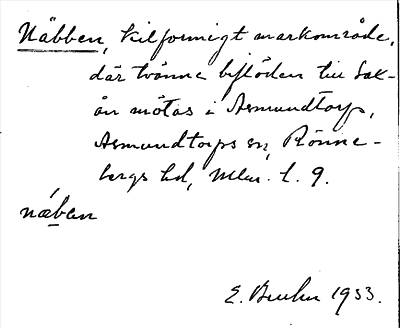 Näbben, kilformigt markområde,
där tvänne biflöden till Sax-
ån mötas i Asmundtorp,
Asmundtorps sn, Rönne-
bergs hd, Mlm. L. 9.
näben
E. Bruhn 1933.